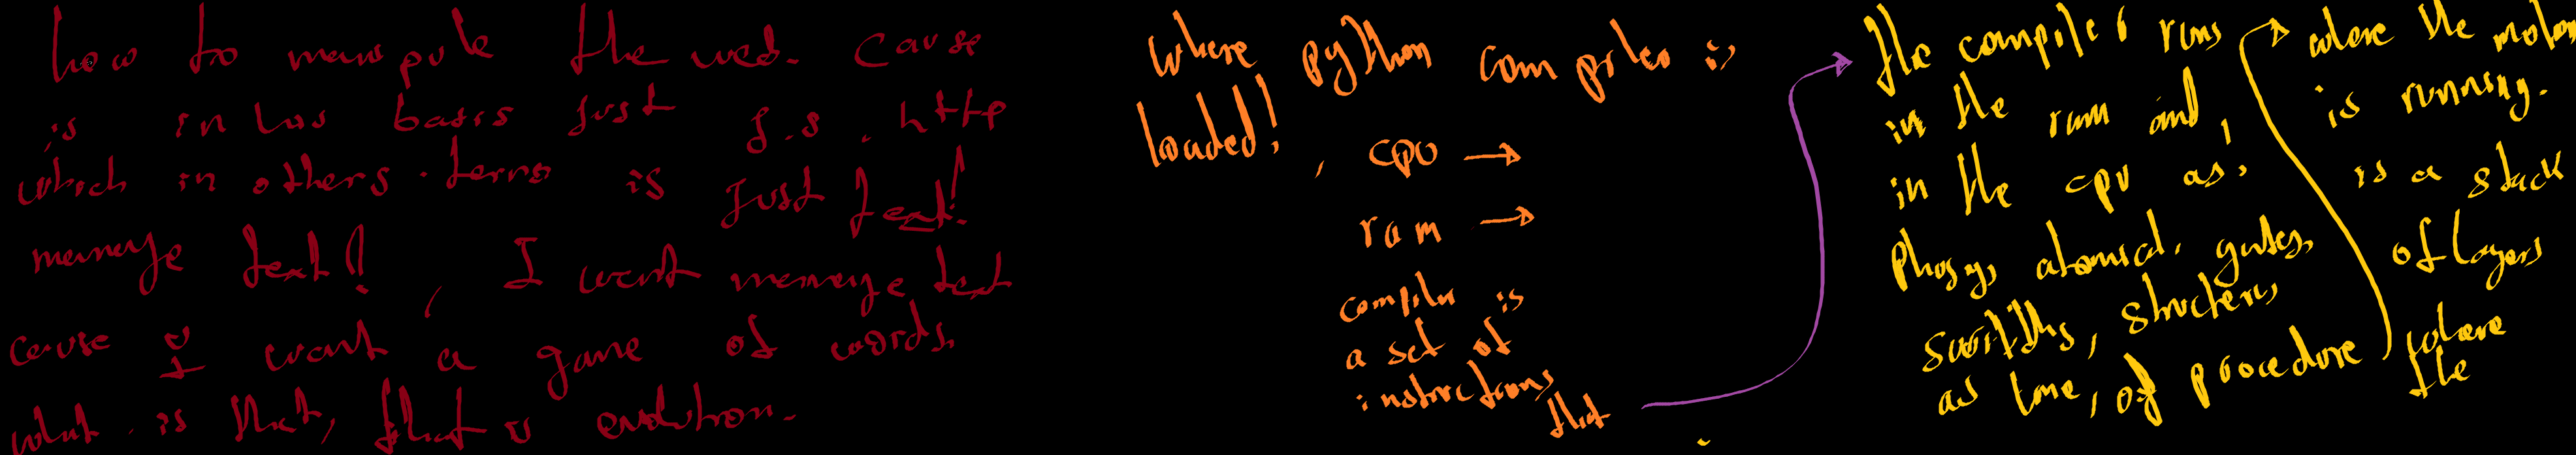 how to manipule the web. cause
is in his basis just f.s. http
which in others. terms is just text!
manage text!!, I want manage text
cause I want a game of words.
what. is that, that is evolution.
where python compiler is
loaded!
, CPU →
ram →
compiler is
a set of
instructions
that
the compiler runs
in the ram and,
in the cpu as:
atomical. gates,
as line, of procedure
where the
is running.
is a stack
of layers
where
the